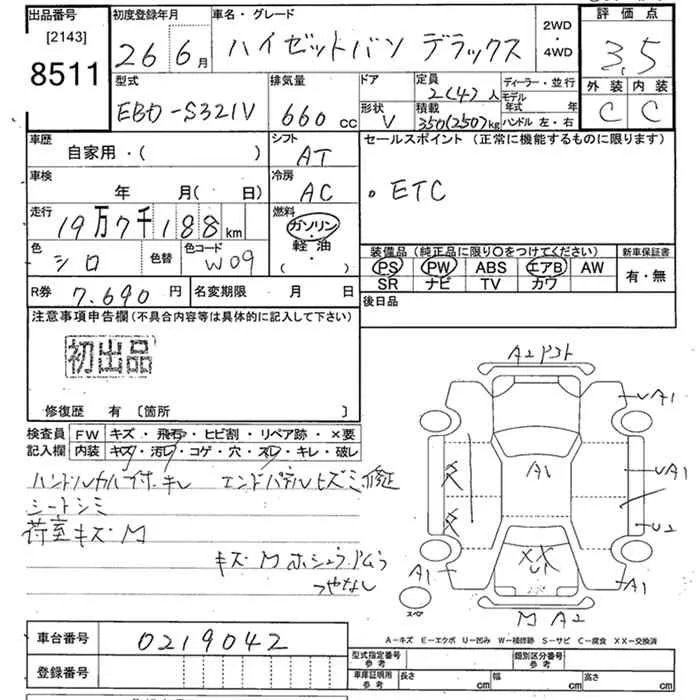 出品番号
[2143]
8511
初度登録年月
26年6月
車名・グレード
ハイゼットバン デラックス
2WD
・
4WD
評価点
3.5
外装 内装
C C
型式
EBD-S321V
排気量
660 cc
ドア
形状
V
定員
2(4)人
積載
350(250)kg
ディーラー・並行
モデル
年式 年
ハンドル 左・右
車歴
自家用・( )
シフト
AT
車検
年 月( 日)
冷房
AC
走行
19万7千188km
燃料
ガソリン
・
軽油
・
( )
色
シロ
色替
色コード
W09
R券
7.690円
名変期限 月 日
セールスポイント(正常に機能するものに限ります)
。ETC
装備品(純正品に限り〇をつけてください)
新車保証書
PS PW ABS エアB AW
SR ナビ TV カワ
有・無
後日品
注意事項申告欄(不具合内容等は具体的に記入して下さい)
初出品
修復歴 有 [箇所 ]
検査員
記入欄
FW キズ・飛石・ヒビ割・リペア跡・×要
内装 キズ・汚レ・コゲ・穴・スレ・キレ・破レ
ハンドルカバー付・キレ エンドパネルヒズミ修正
シートシミ
荷室キズ・M
つやなし
A2
A1
U2
A1
A1
XX
U1
A1
スペア
M A2
A-キズ E-エクボ U-凹み W-補修跡 S-サビ C-腐食 XX-交換済
車台番号
0219042
登録番号
型式指定番号
参考
類別区分番号
参考
車庫証明用
参考
長さ cm
幅 cm
高さ cm